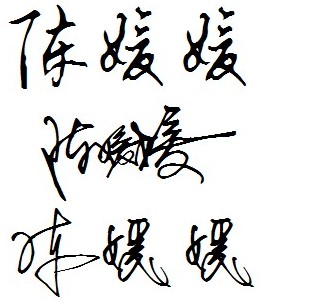 陈媛媛
陈媛媛
陈媛媛